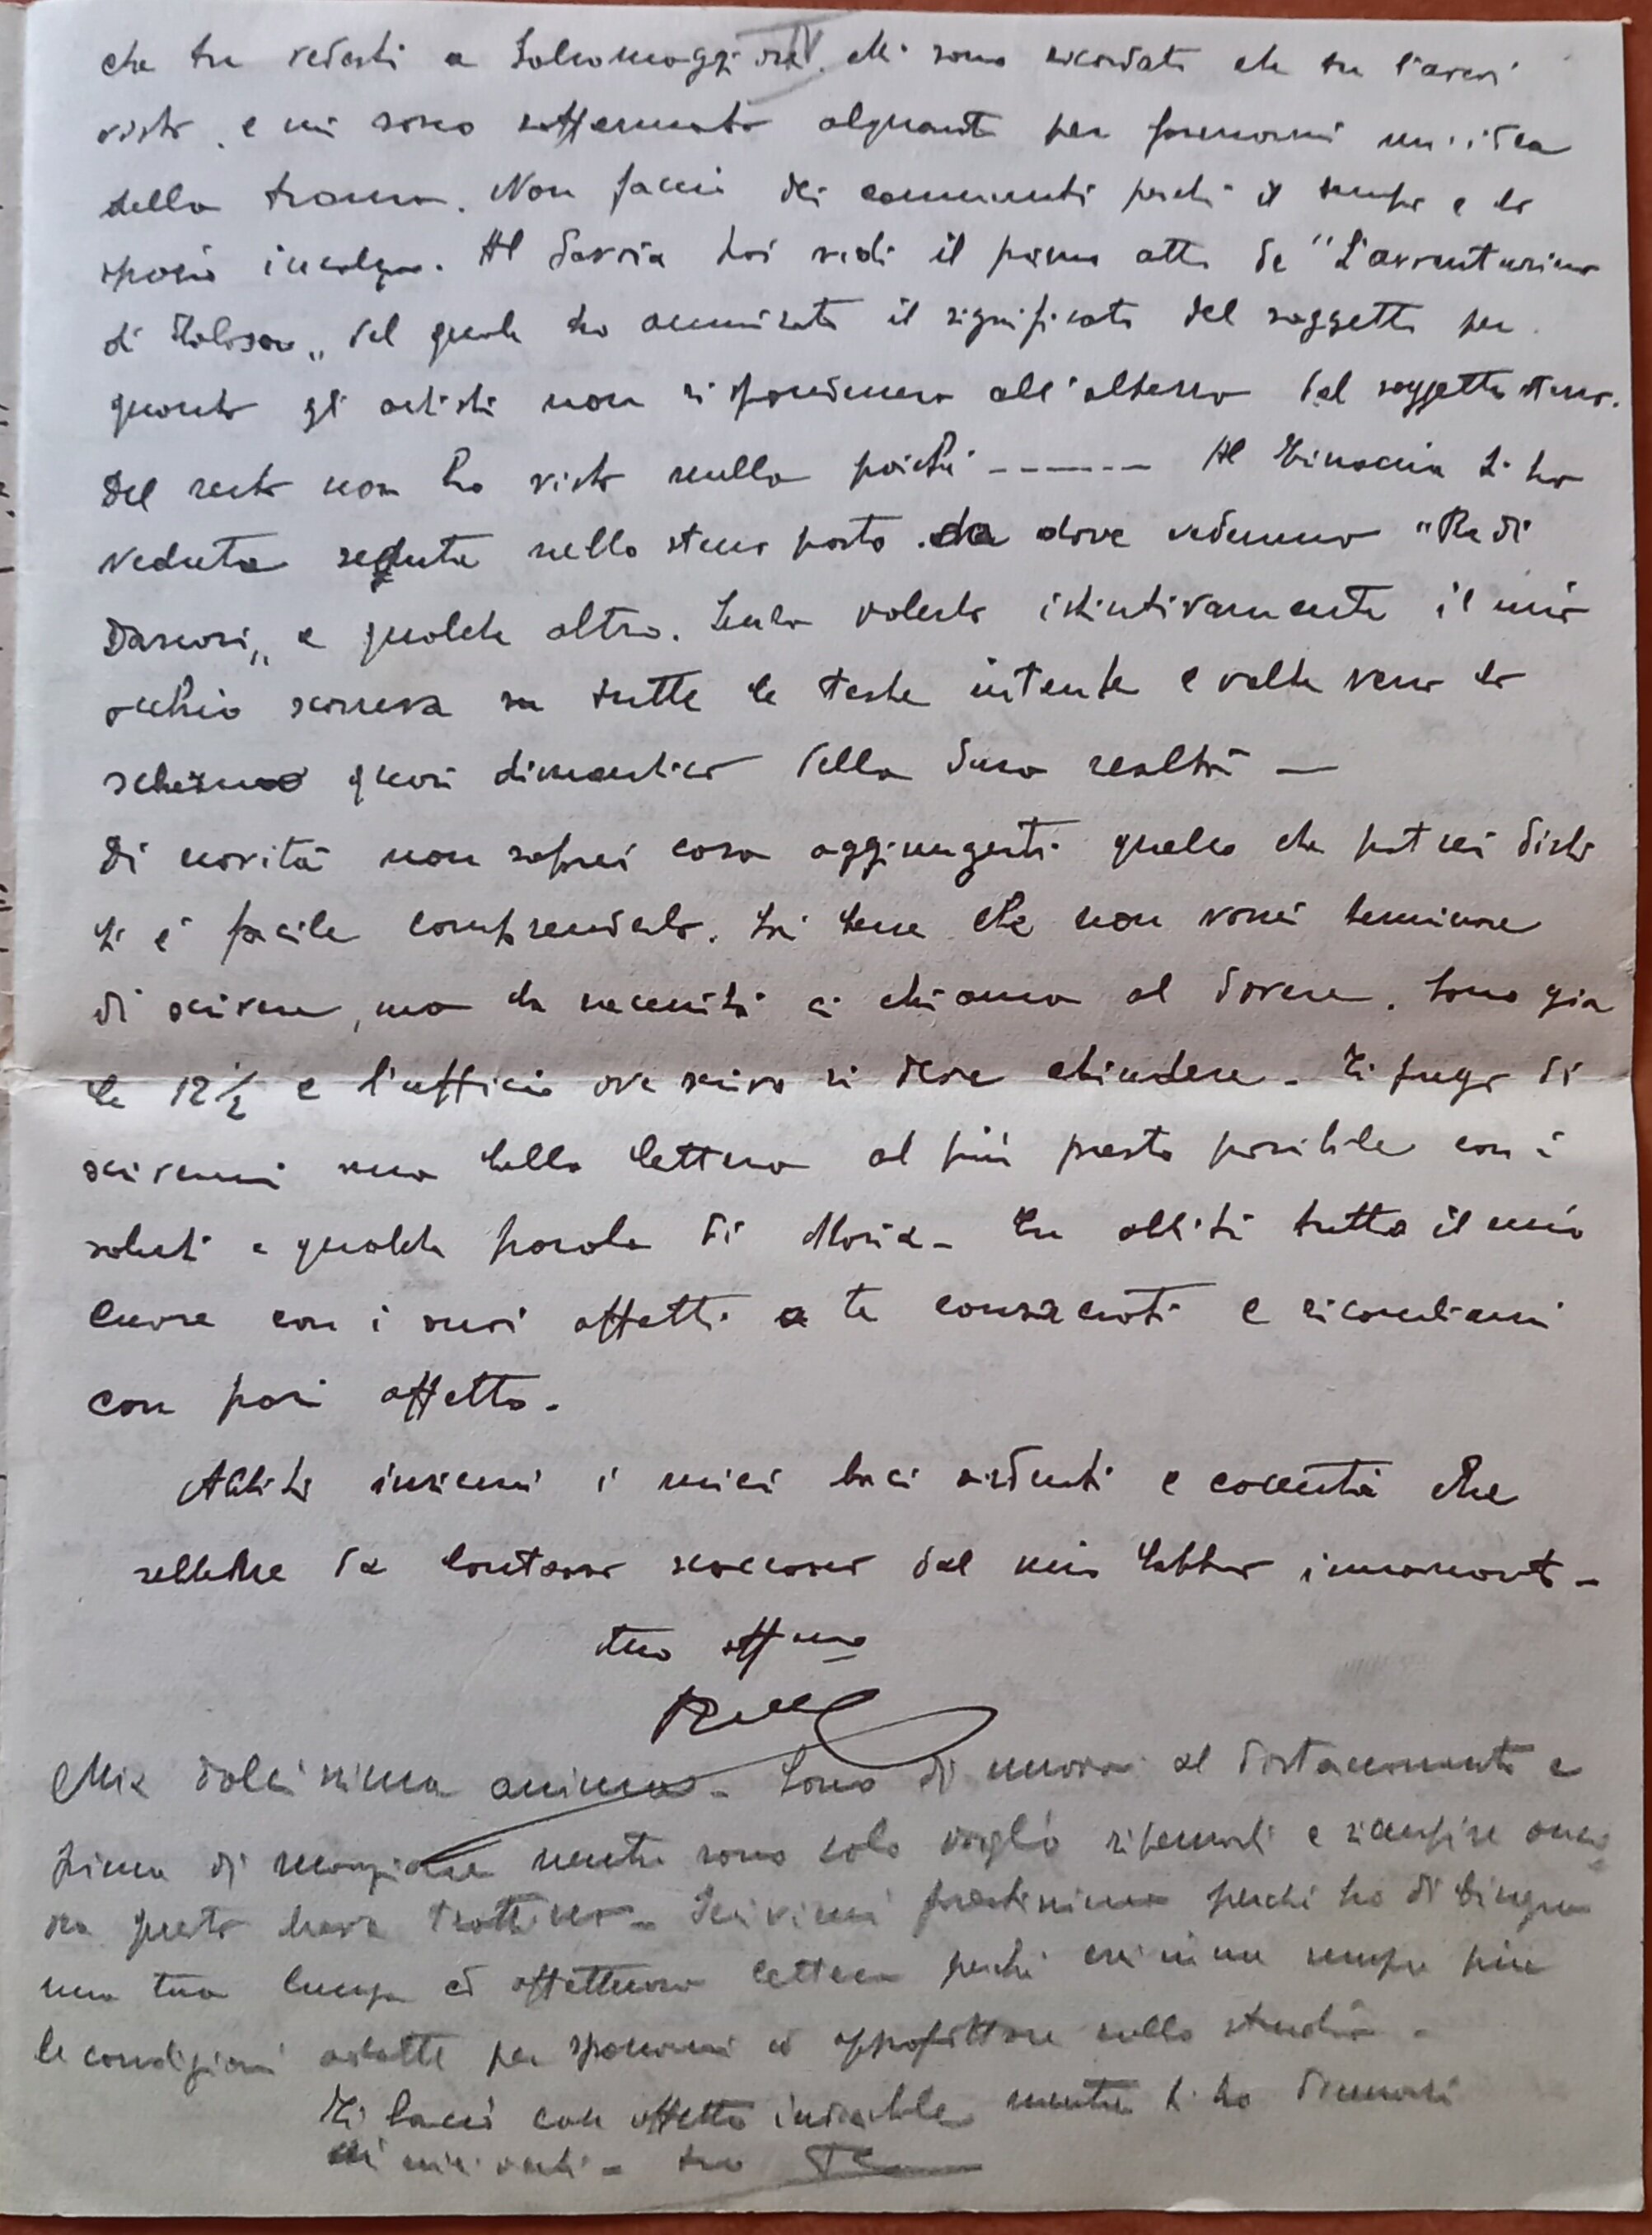 che tu vedesti a Salsomaggiore. Mi sono ricordato che tu l'avevi
visto, e mi sono soffermato alquanto per formarmi un'idea
della trama. Non faccio dei commenti perché il tempo e lo
spazio incalza. Al Savoia poi vidi il primo atto de "L'avventuriero
di Malosan„ del quale ho ammirato il significato del soggetto per
quanto gli artisti non rispondevano all'altezza del soggetto stesso.
Del resto non ho visto nulla poichè ------- Al ti ho
veduta seduta nello stesso posto da dove vedemmo "Re di
Danari„ e qualche altro. Senza volerlo istintivamente il mio
occhio scorreva su tutte le teste intente e volte verso lo
schermo quasi dimentico della dura realtà —
Di novità non saprei cosa aggiungerti quello che potrei dirti
ti è facile comprenderlo. Sai bene che non vorrei terminare
di scrivere, ma la necessità ci chiama al dovere. Sono già
le 12 1/2 e l'ufficio ove scrivo si deve chiudere - Ti prego di
scrivermi una bella lettera al più presto possibile con i
saluti e qualche parola di Maria - Tu abbiti tutto il mio
cuore con i suoi affetti a te consacrati e ricambiami
con pari affetto -
Abbiti insieme i miei baci ardenti e cocenti che
sebbene da lontano scoccano dal mio labbro innamorato -
tuo aff mo
Mia dolcissima anima - Sono di nuovo al distaccamento e
prima di mangiare mentre sono solo voglio ripensarti e riempire anco
ra questo breve trattino - Scrivimi prestissimo perchè ho di bisogno
una tua lunga ed affettuosa lettera perchè sempre più
le condizioni adatte per spronarmi ed approfittare nello studio -
Ti bacio con affetto indicibile mentre ti ho dinnanzi
ai miei occhi - tuo